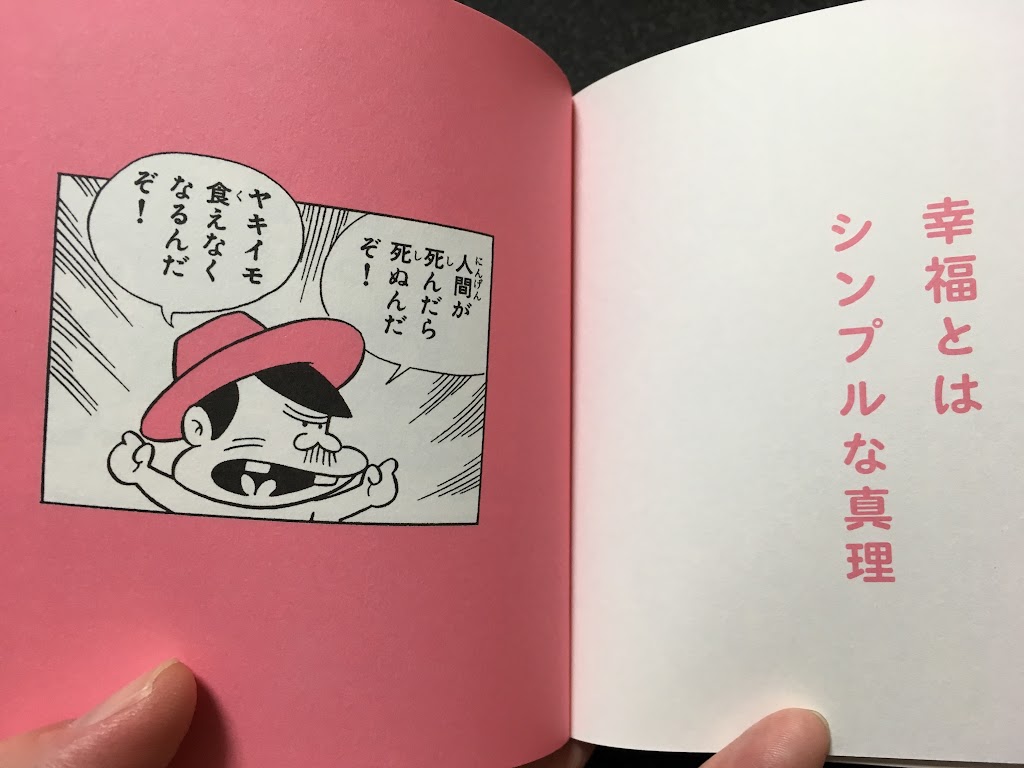 幸福とは
シンプルな真理
人間が
にんげん
死んだら
し
死ぬんだ
し
ぞ！
ヤキイモ
食えなく
く
なるんだ
ぞ！